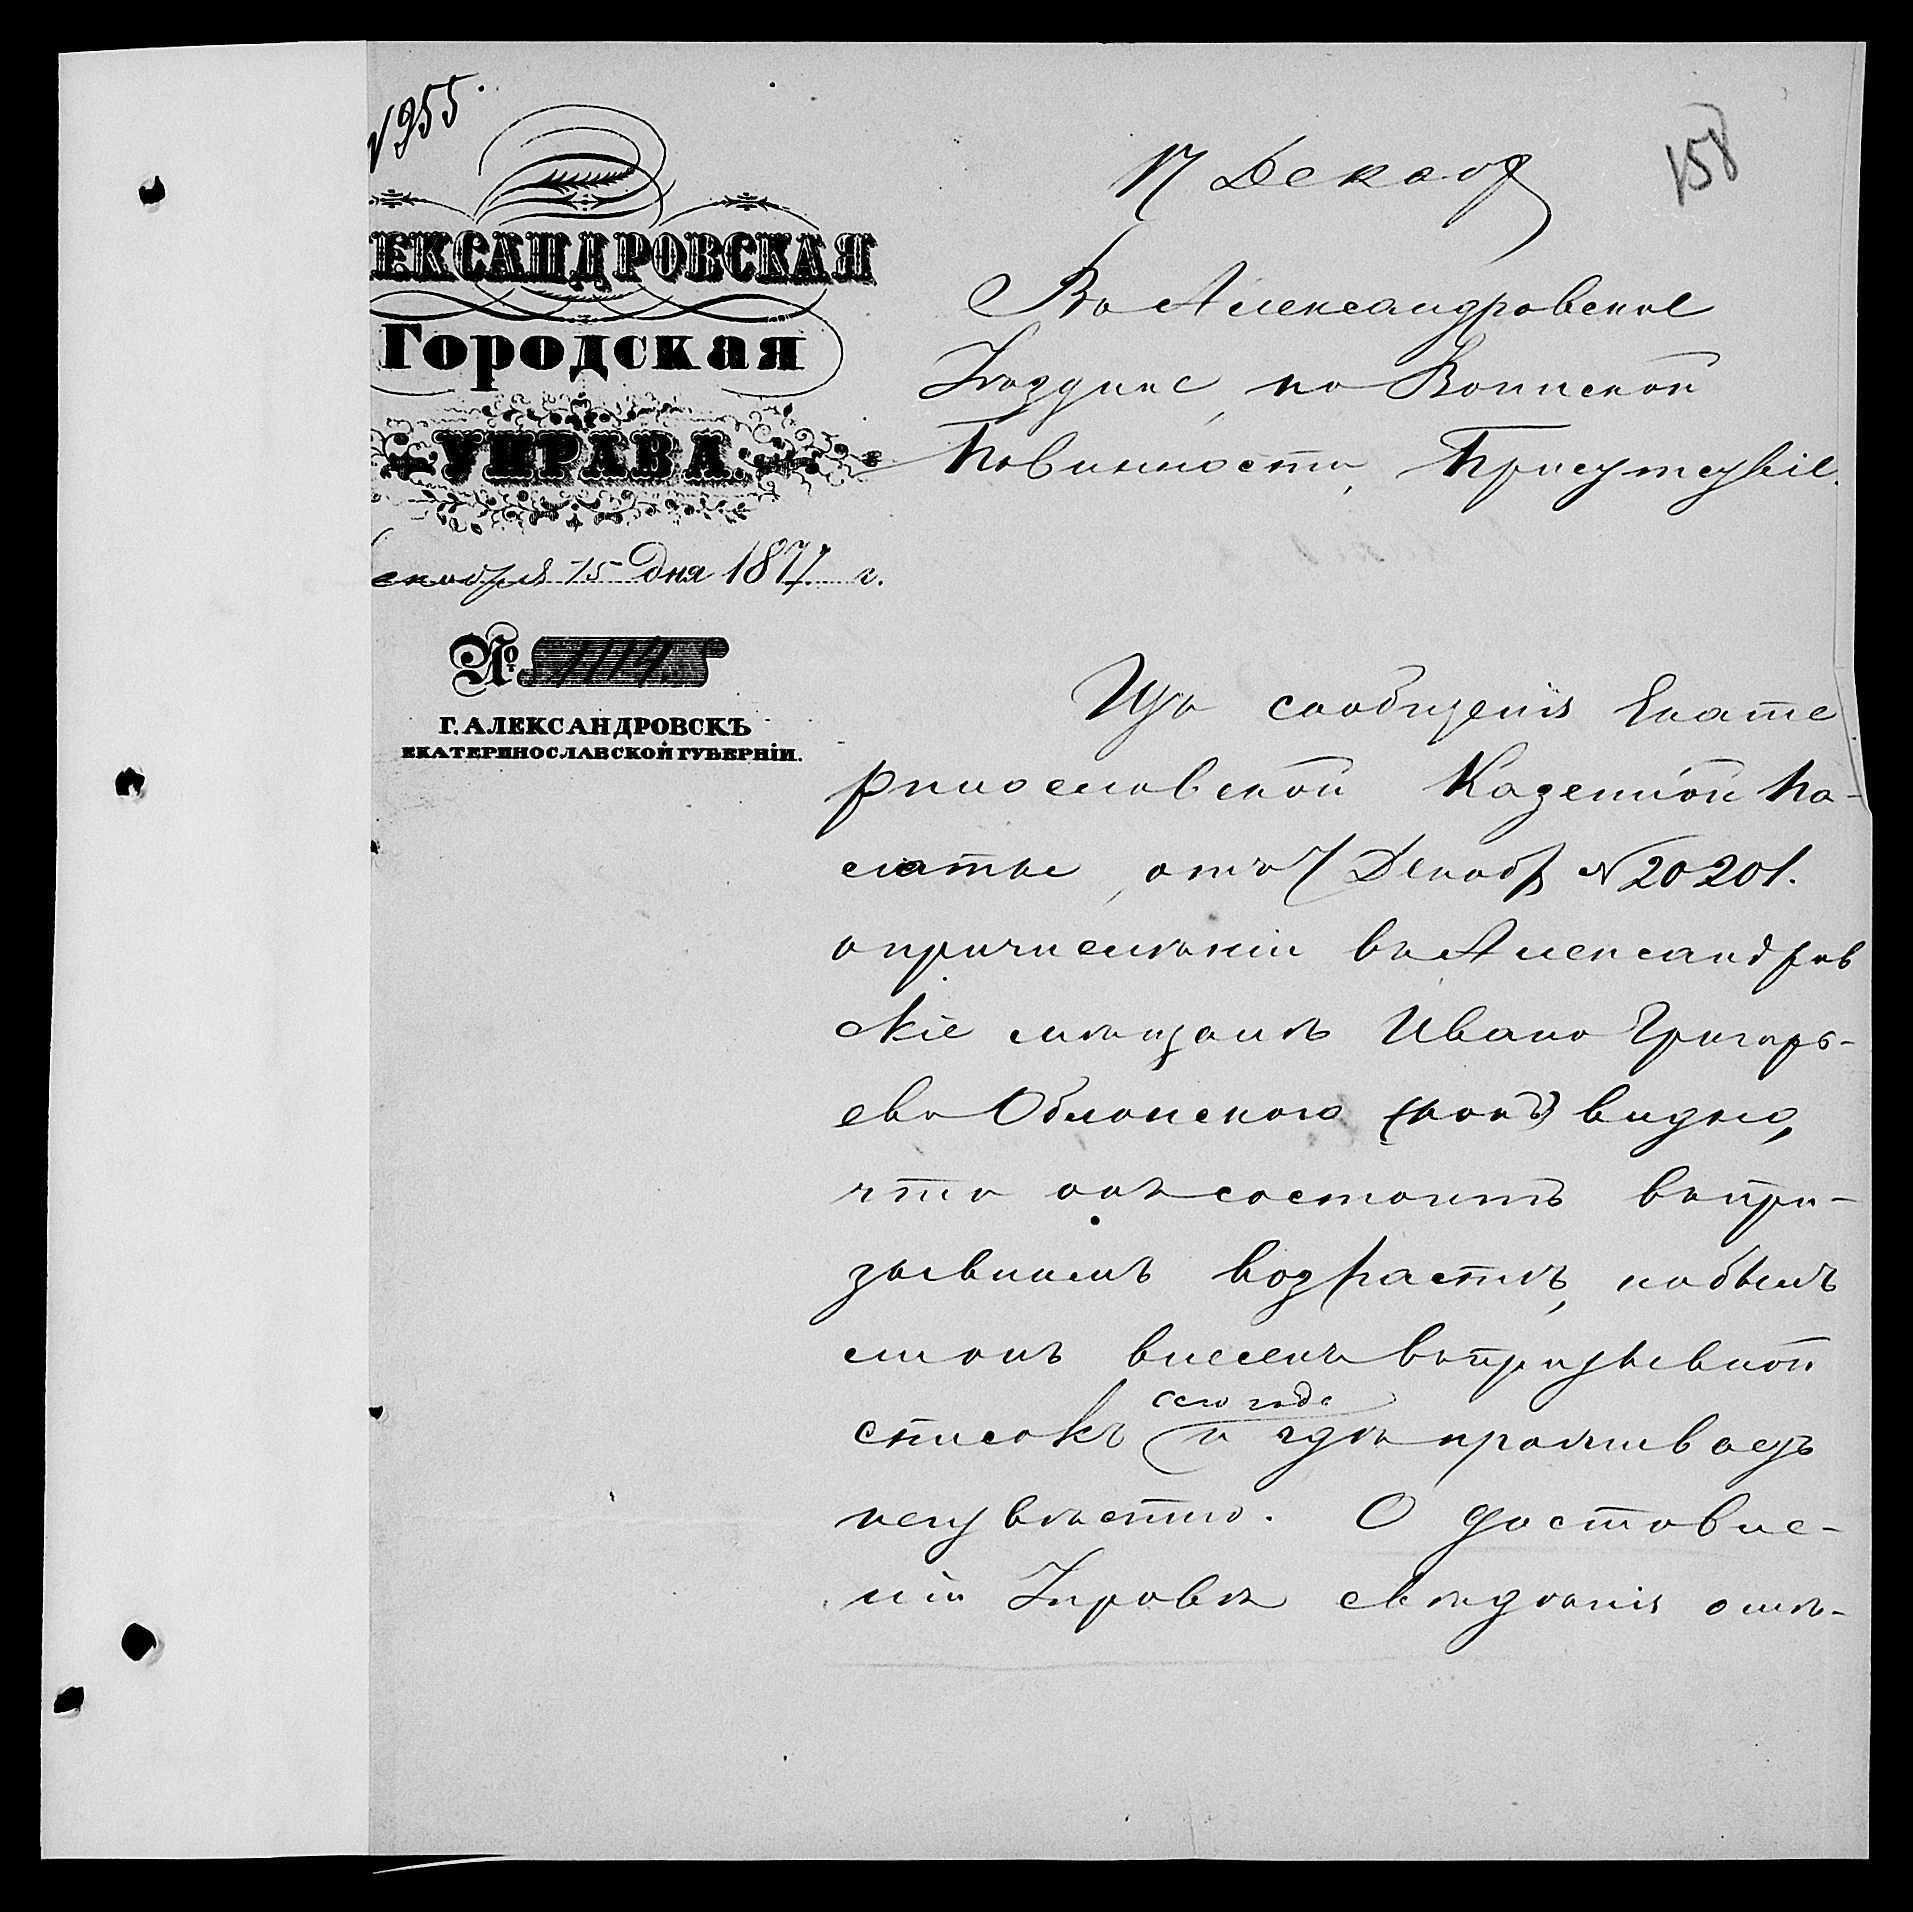 № 955.
158
17 Декаб
ЕКСАНДРОВСКАЯ
Городская
УПРАВА.
екабря 15 Дня 1877 г.
№ 1114
Г. АЛЕКСАНДРОВСКЪ
ЕКАТЕРИНОСЛАВСКОЙ ГУБЕРНІИ.
Въ Александровское
Уѣздное по Воинской
Повинности Присутствіе.
Изъ сообщенія Екате
ринославской Казенной Па-
латы, отъ 7 Декабр № 20201.
о причисленіи въ Александров
скіе мѣщане Ивана Григорь-
ева видно,
что онъ состоитъ въ при-
зывномъ возрастѣ, но былъ
ли онъ внесенъ въ призывной
сего года
списокъ и гдѣ проживаетъ
неизвѣстно. О доставле-
ніи Управѣ свѣдѣнія отно-